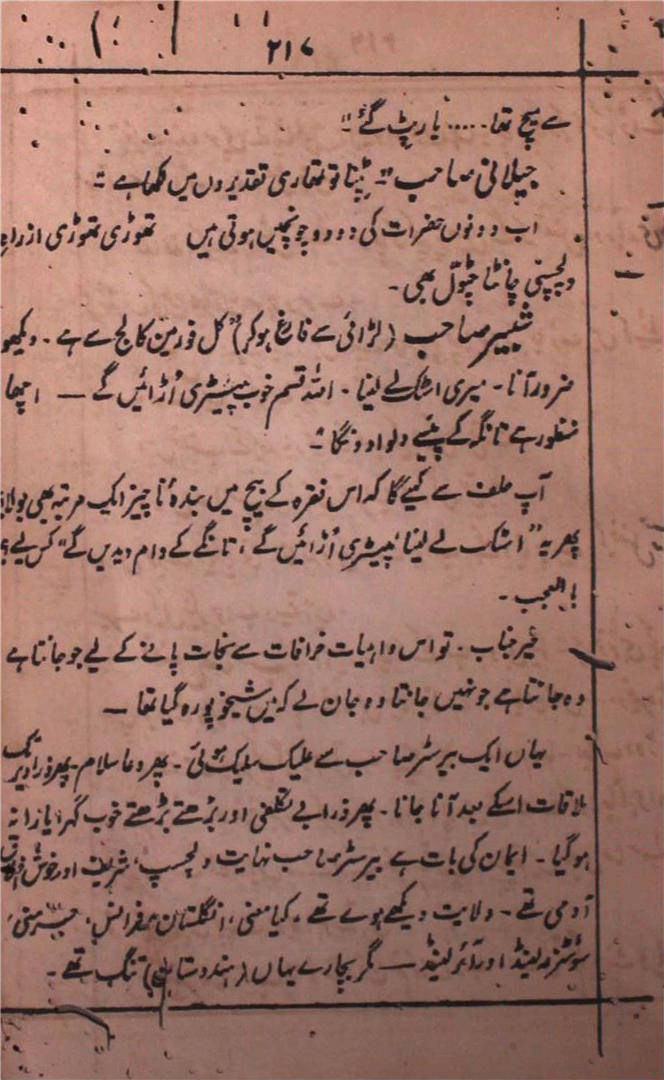 ۲۱۷
سے بیچ تھا ..... یا رپٹ گئے"
جیلانی صاحب "پٹنا تو تمھاری تقدیروں میں لکھا ہے"
اب دونوں حضرات کی دو دو چونچیں ہوتی ہیں تھوڑی تھوڑی از راہ
دلچسپی چانٹا چپوّل بھی۔
شبیر صاحب (لڑائی سے فارغ ہوکر) "کل فورمین کالج سے ہے۔ دیکھو
ضرور آنا۔ میری اسٹک لے لینا۔ اللہ قسم خوب پیسٹری اُڑائیں گے — اچھا
منظور ہے تانگہ کے پیسے دلوا دونگا"۔
آپ حلف سے کہیے گا کہ اس فقرہ کے بیچ میں بندۂ ناچیز ایک مرتبہ بھی بولا
پھر یہ "اسٹک لے لینا، پیسٹری اُڑائیں گے، تانگے کے دام دیدیں گے" کس لیے؟
یا للعجب۔
خیر جناب۔ تو اس واہیات خرافات سے نجات پانے کے لیے جو جانتا ہے
وہ جانتا ہے جو نہیں جانتا وہ جان لے کہ میں شیخوپورہ گیا تھا —
یہاں ایک بیرسٹر صاحب سے علیک سلیک ہوئی۔ پھر دعا سلام۔ پھر ذرا دیر تک
ملاقات اسکے بعد آنا جانا۔ پھر ذرا بے تکلفی اور بڑھتے بڑھتے خوب گہرا یارانہ
ہو گیا۔ ایمان کی بات ہے بیرسٹر صاحب نہایت دلچسپ، شریف اور خوش
آدمی تھے۔ ولایت دیکھے ہوے تھے۔ کیا معنی، انگلستان، فرانس، جرمنی،
سوئٹزرلینڈ اور آئرلینڈ — مگر بیچارے یہاں (ہندوستان) تنگ تھے۔